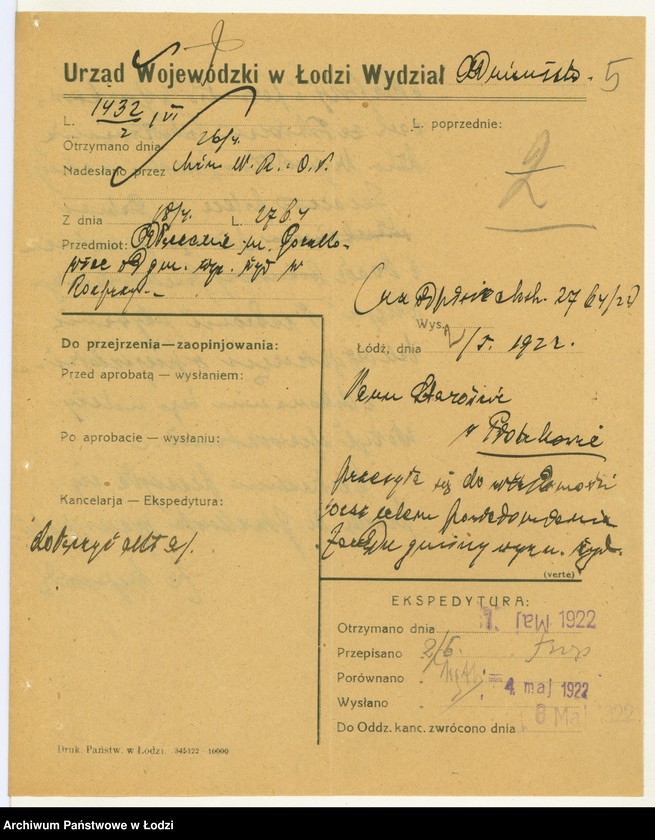 Urząd Wojewódzki w Łodzi Wydział
5
L. 1432/2 VI
L. poprzednie:
Otrzymano dnia 26/4.
Nadesłano przez Min. W. R. i O. P.
2
Z dnia 18/4. L. 2764
Przedmiot:
gm. wyz. żyd. w
Rozprzy.
(na odpis
2764/22
Wys.
Łódź, dnia 2/5. 1922.
Do przejrzenia—zaopinjowania:
Przed aprobatą — wysłaniem:
Panu Staroście
w Piotrkowie
Po aprobacie — wysłaniu:
przesyła się do wiadomości
oraz celem powiadomienia
Kancelarja — Ekspedytura:
Zarządu gminy wyzn. żyd.
(verte)
EKSPEDYTURA:
Otrzymano dnia 1. Maj 1922
Przepisano 2/5.
Porównano
4. maj 1922
Wysłano
Do Oddz. kanc. zwrócono dnia 8 Maj 1922.
Druk. Państw. w Łodzi. 345122 10000
Archiwum Państwowe w Łodzi